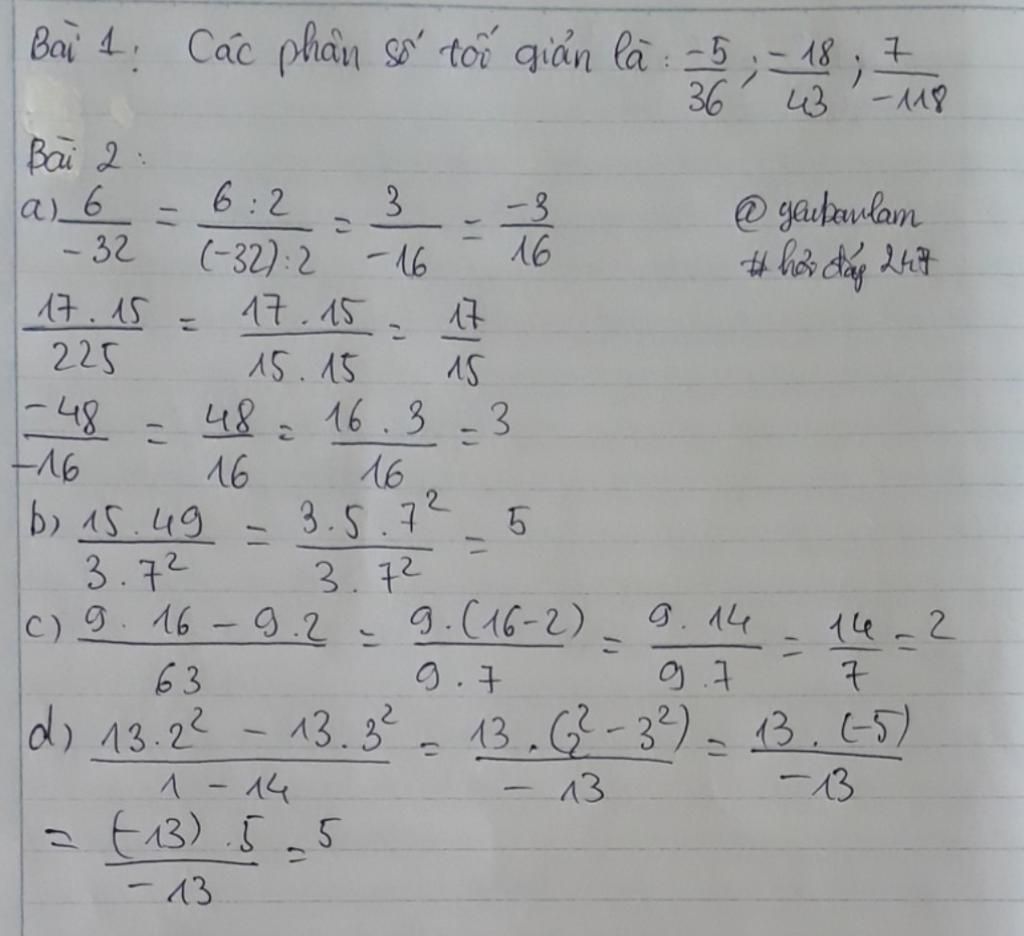 Bài 1: Các phân số tối giản là: -5/36; -18/43; 7/-118
Bài 2:
a) 6/-32 = 6:2/(-32):2 = 3/-16 = -3/16
@gaubaulam
#hỏi đáp 247
17.15/225 = 17.15/15.15 = 17/15
-48/-16 = 48/16 = 16.3/16 = 3
b) 15.49/3.7² = 3.5.7²/3.7² = 5
c) 9.16-9.2/63 = 9.(16-2)/9.7 = 9.14/9.7 = 14/7 = 2
d) 13.2²-13.3²/1-14 = 13.(2²-3²)/-13 = 13.(-5)/-13
= (-13).5/-13 = 5